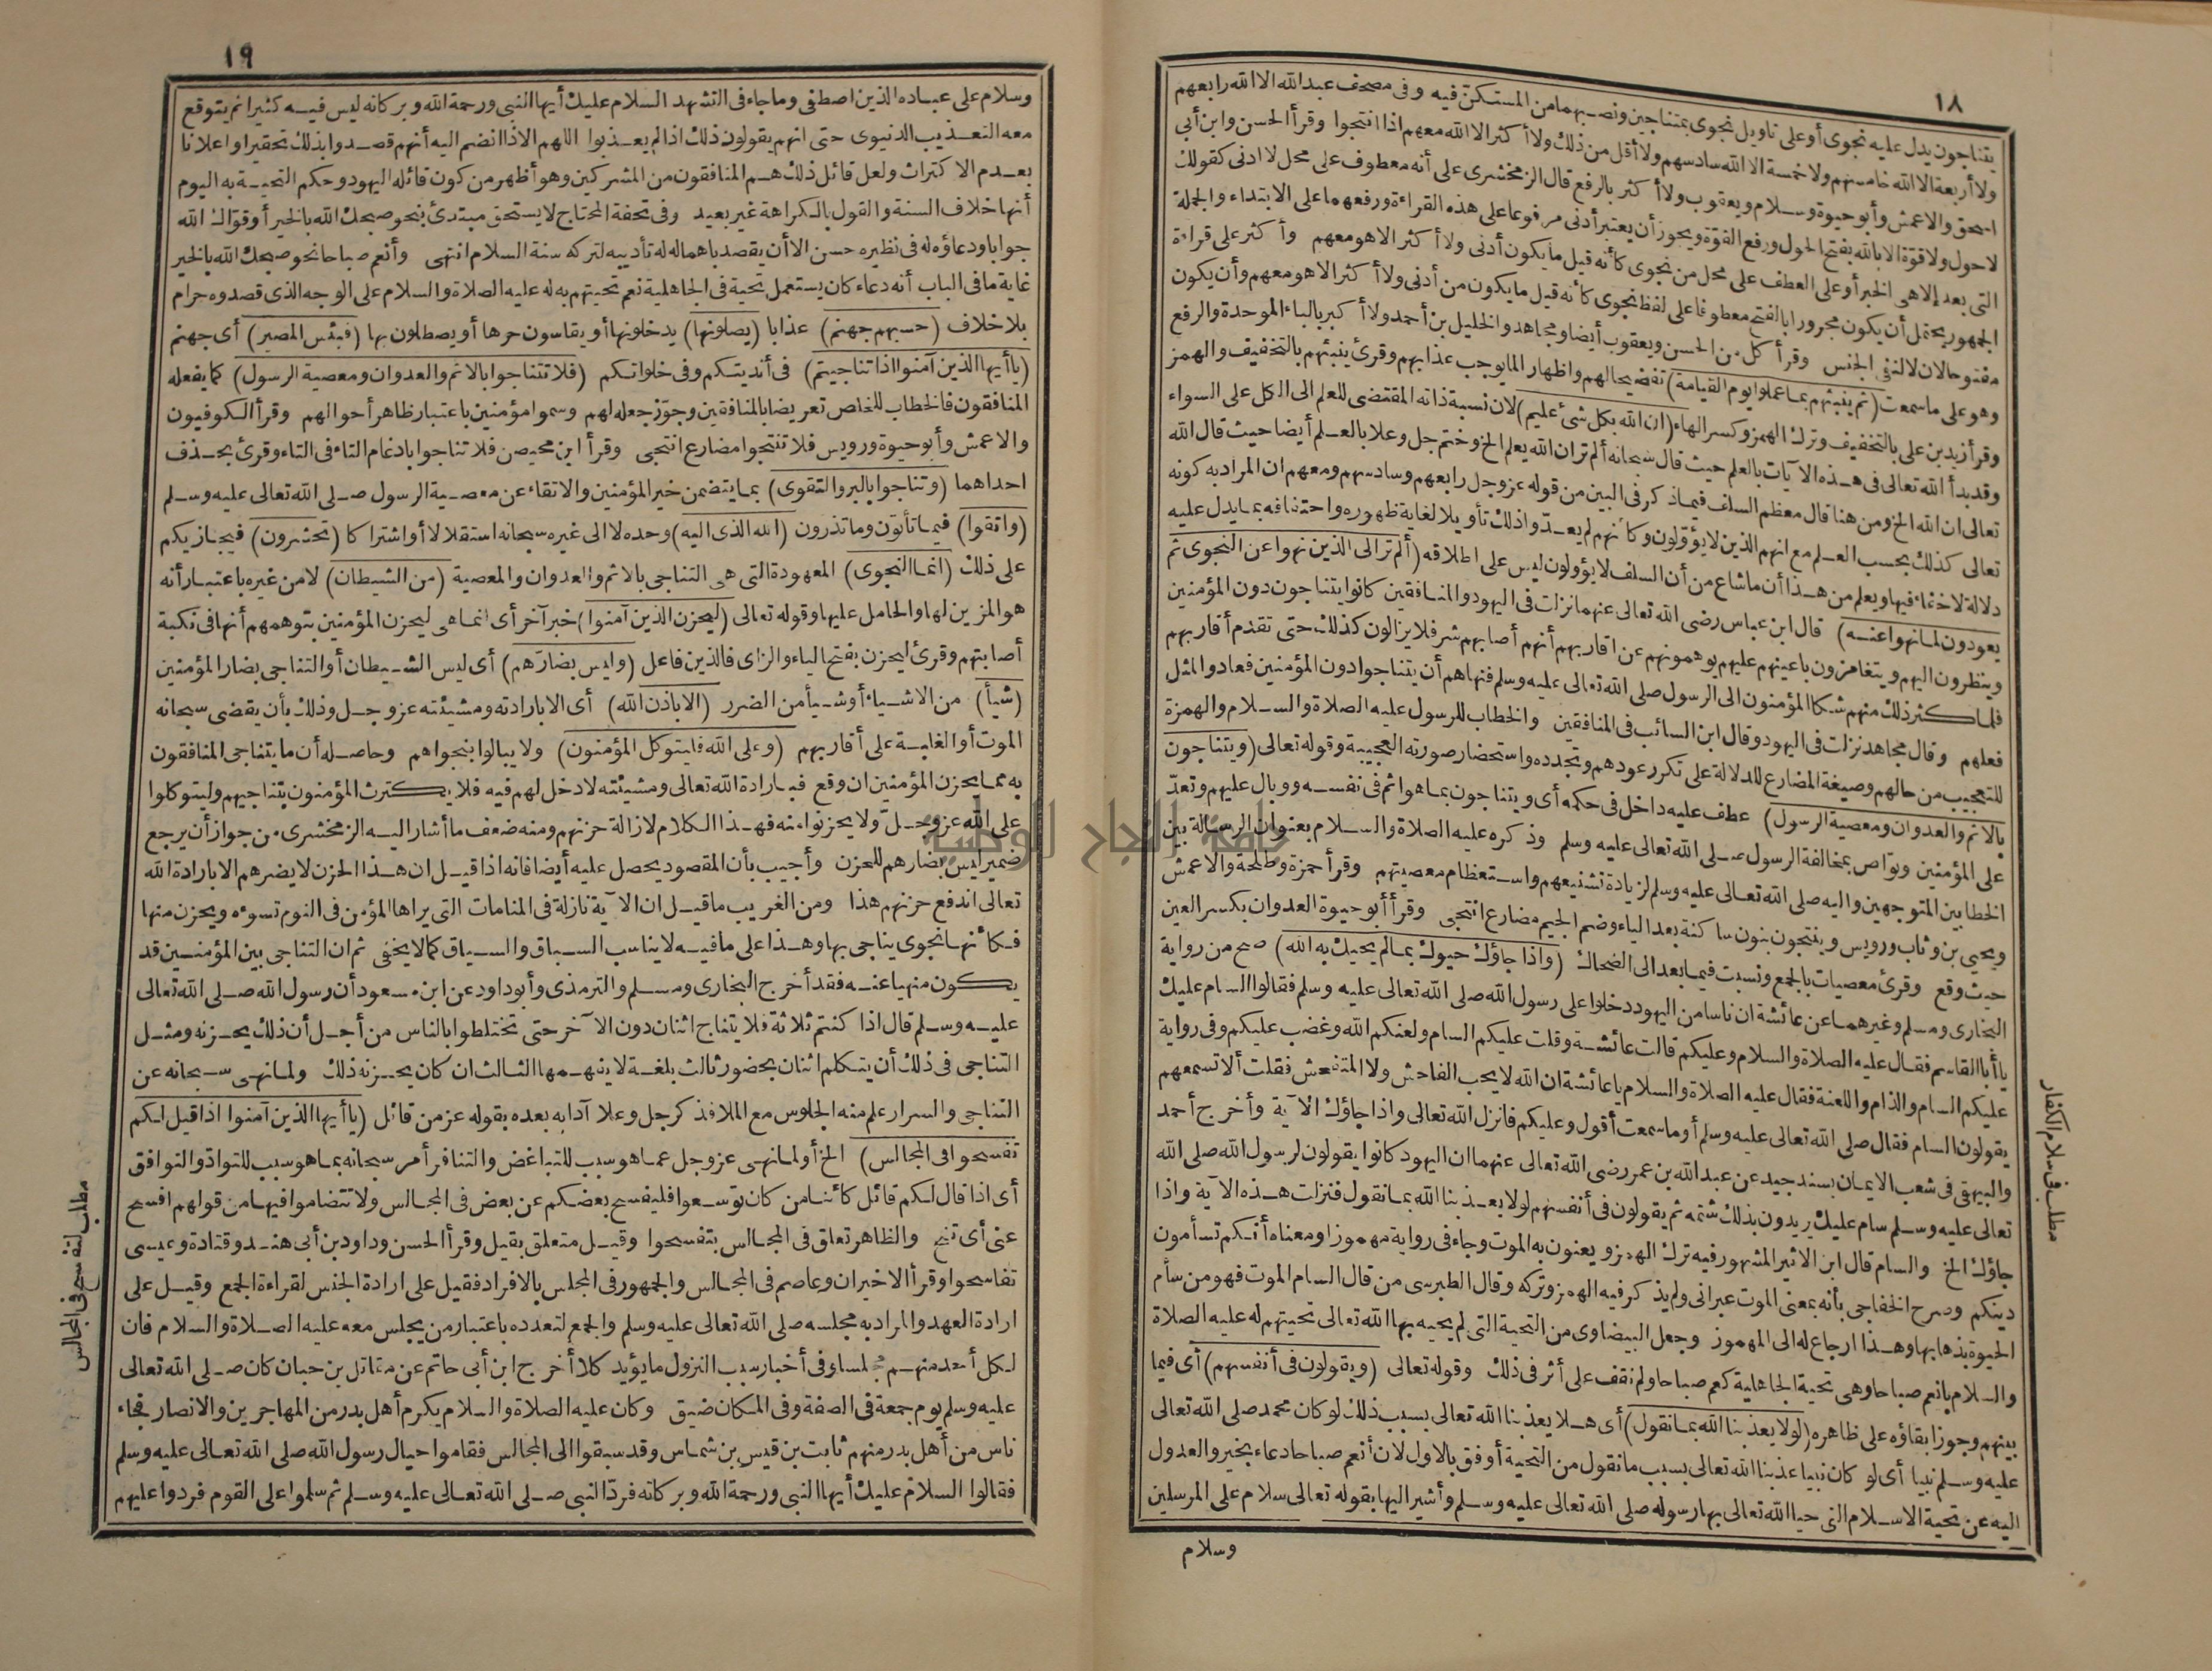 ١٨
يتناجون يدل عليه نجوى أو على تاويل نجوى بمتناجين ونصبهما من المستكنّ فيه وفى مصحف عبد الله الا الله رابعهم
ولا أربعة الا الله خامسهم ولا خمسة الا الله سادسهم ولا أقل من ذلك ولا أكثر الا الله معهم اذا انتجوا وقرأ الحسن وابن أبي
اسحق والاعمش وأبو حيوة وسلام ويعقوب ولا أكثر بالرفع قال الزمخشرى على أنه معطوف على محل لا ادنى كقولك
لا حول ولا قوّة الا بالله بفتح الحول ورفع القوّة ويجوز أن يعتبر أدنى مرفوعا على هذه القراءة ورفعهما على الابتداء والجملة
التى بعد إلا هى الخبر أو على العطف على محل من نجوى كأنه قيل ما يكون أدنى ولا أكثر الا هو معهم وأكثر على قراءة
الجمهور يحتمل أن يكون مجرورا بالفتح معطوفا على لفظ نجوى كأنه قيل ما يكون من أدنى ولا أكثر الا هو معهم وأن يكون
مفتوحا لان لا لنفى الجنس وقرأ كل من الحسن ويعقوب أيضا ومجاهد والخليل بن أحمد ولا أكبر بالباء الموحدة والرفع
وهو على ما سمعت (ثم ينبئهم بما عملوا يوم القيامة) تفضيحا لهم واظهارا لما يوجب عذابهم وقرئ ينبئهم بالتخفيف والهمز
وقرأ زيد بن على بالتخفيف وترك الهمز وكسر الهاء (ان الله بكل شئ عليم) لان نسبة ذاته المقتضى للعلم الى الكل على السواء
وقد بدأ الله تعالى فى هذه الآيات بالعلم حيث قال سبحانه ألم تر ان الله يعلم الخ وختم جل وعلا بالعلم أيضا حيث قال الله
تعالى ان الله الخ ومن هنا قال معظم السلف فيما ذكر فى البين من قوله عز وجل رابعهم وسادسهم ومعهم ان المراد به كونه
تعالى كذلك بحسب العلم مع انهم الذين لا يؤوّلون وكأنهم لم يعدّوا ذلك تأويلا لغاية ظهوره واحتفافه بما يدل عليه
دلالة لا خفاء فيها ويعلم من هذا أن ما شاع من أن السلف لا يؤولون ليس على اطلاقه (ألم تر الى الذين نهوا عن النجوى ثم
يعودون لما نهوا عنه) قال ابن عباس رضى الله تعالى عنهما نزلت فى اليهود والمنافقين كانوا يتناجون دون المؤمنين
وينظرون اليهم ويتغامزون باعينهم عليهم يوهمونهم عن اقاربهم أنهم أصابهم شر فلا يزالون كذلك حتى تقدم أقاربهم
فلما كثر ذلك منهم شكا المؤمنون الى الرسول صلى الله تعالى عليه وسلم فنهاهم أن يتناجوا دون المؤمنين فعادوا لمثل
فعلهم وقال مجاهد نزلت فى اليهود وقال ابن السائب فى المنافقين والخطاب للرسول عليه الصلاة والسلام والهمزة
للتعجيب من حالهم وصيغة المضارع للدلالة على تكرر عودهم وتجدده واستحضار صورته العجيبة وقوله تعالى (ويتناجون
بالاثم والعدوان ومعصية الرسول) عطف عليه داخل فى حكمه أى ويتناجون بما هو اثم فى نفسه ووبال عليهم وتعدّ
على المؤمنين وتواص بمخالفة الرسول صلى الله تعالى عليه وسلم وذكره عليه الصلاة والسلام بعنوان الرسالة بين
الخطابين المتوجهين واليه صلى الله تعالى عليه وسلم لزيادة تشنيعهم واستعظام معصيتهم وقرأ حمزة وطلحة والاعمش
ويحيى بن وثاب ورويس وينتجون بنون ساكنة بعد الياء وضم الجيم مضارع انتجى وقرأ أبو حيوة العدوان بكسر العين
حيث وقع وقرئ معصيات بالجمع ونسبت فيما بعد الى الضحاك (واذا جاؤك حيوك بما لم يحيك به الله) صح من رواية
البخارى ومسلم وغيرهما عن عائشة ان ناسا من اليهود دخلوا على رسول الله صلى الله تعالى عليه وسلم فقالوا السام عليك
يا أبا القاسم فقال عليه الصلاة والسلام وعليكم قالت عائشة وقلت عليكم السام ولعنكم الله وغضب عليكم وفى رواية
عليكم السام والذام واللعنة فقال عليه الصلاة والسلام يا عائشة ان الله لا يحب الفاحش ولا المتفحش فقلت ألا تسمعهم
يقولون السام فقال صلى الله تعالى عليه وسلم أوما سمعت أقول وعليكم فانزل الله تعالى واذا جاؤك الآية وأخرج أحمد
والبيهقى فى شعب الايمان بسند جيد عن عبد الله بن عمر رضى الله تعالى عنهما ان اليهود كانوا يقولون لرسول الله صلى الله
تعالى عليه وسلم سام عليك يريدون بذلك شتمه ثم يقولون فى أنفسهم لولا يعذبنا الله بما نقول فنزلت هذه الآية واذا
جاؤك الخ والسام قال ابن الاثير المشهور فيه ترك الهمز ويعنون به الموت وجاء فى رواية مهموزا ومعناه أنكم تسأمون
دينكم وصرح الخفاجى بأنه بمعنى الموت عبرانى ولم يذكر فيه الهمز وتركه وقال الطبرسى من قال السام الموت فهو من سأم
الحيوة بذهابها وهذا ارجاع له الى المهموز وجعل البيضاوى من التحية التى لم يحيه بها الله تعالى تحيتهم له عليه الصلاة
والسلام بانعم صباحا وهى تحية الجاهلية كعم صباحا ولم نقف على أثر فى ذلك وقوله تعالى (ويقولون فى أنفسهم) أى فيما
بينهم وجوز ابقاؤه على ظاهره (لولا يعذبنا الله بما نقول) أى هلا يعذبنا الله تعالى بسبب ذلك لو كان محمد صلى الله تعالى
عليه وسلم نبيا أى لو كان نبيا عذبنا الله تعالى بسبب ما نقول من التحية أوفق بالاول لان أنعم صباحا دعاء بخير والعدول
اليه عن تحية الاسلام التى حيا الله تعالى بها رسوله صلى الله تعالى عليه وسلم وأشير اليها بقوله تعالى سلام على المرسلين
وسلام
مطلب فى سلام الكفار
١٩
وسلام على عباده الذين اصطفى وما جاء فى التشهد السلام عليك أيها النبى ورحمة الله وبركاته ليس فيه كثير اثم يتوقع
معه التعذيب الدنيوى حتى انهم يقولون ذلك اذا لم يعذبوا اللهم الا اذا انضم اليه أنهم قصدوا بذلك تحقيرا واعلانا
بعدم الاكتراث ولعل قائل ذلك هم المنافقون من المشركين وهو أظهر من كون قائله اليهود وحكم التحية به اليوم
أنها خلاف السنة والقول بالكراهة غير بعيد وفى تحفة المحتاج لا يستحق مبتدئ بنحو صبحك الله بالخير أو قوّاك الله
جوابا ودعاؤه له فى نظيره حسن الا أن يقصد باهماله له تأديبه لتركه سنة السلام انتهى وأنعم صباحا نحو صبحك الله بالخير
غاية ما فى الباب أنه دعاء كان يستعمل تحية فى الجاهلية نعم تحيتهم به له عليه الصلاة والسلام على الوجه الذى قصدوه حرام
بلا خلاف (حسبهم جهنم) عذابا (يصلونها) يدخلونها أو يقاسون حرها أو يصطلون بها (فبئس المصير) أى جهنم
(يا أيها الذين آمنوا اذا تناجيتم) فى أنديتكم وفى خلواتكم (فلا تتناجوا بالاثم والعدوان ومعصية الرسول) كما يفعله
المنافقون فالخطاب للخاص تعريضا بالمنافقين وجوّز جعله لهم وسموا مؤمنين باعتبار ظاهر أحوالهم وقرأ الكوفيون
والاعمش وأبو حيوة ورويس فلا تنتجوا مضارع انتجى وقرأ ابن محيصن فلا تناجوا بادغام التاء فى التاء وقرئ بحذف
احداهما (وتناجوا بالبر والتقوى) بما يتضمن خير المؤمنين والاتقاء عن معصية الرسول صلى الله تعالى عليه وسلم
(واتقوا) فيما تأتون وما تذرون (الله الذى اليه) وحده لا الى غيره سبحانه استقلالا أو اشتراكا (تحشرون) فيجازيكم
على ذلك (انما النجوى) المعهودة التى هى التناجى بالاثم والعدوان والمعصية (من الشيطان) لا من غيره باعتبار أنه
هو المزين لها والحامل عليها وقوله تعالى (ليحزن الذين آمنوا) خبر آخر أى انما هى ليحزن المؤمنين بتوهمهم أنها فى نكبة
أصابتهم وقرئ ليحزن بفتح الياء والزاى فالذين فاعل (وليس بضارّهم) أى ليس الشيطان أو التناجى بضار المؤمنين
(شيأ) من الاشياء أو شيأ من الضرر (الا باذن الله) أى الا بارادته ومشيئته عز وجل وذلك بأن يقضى سبحانه
الموت أو الغلبة على أقاربهم (وعلى الله فليتوكل المؤمنون) ولا يبالوا بنجواهم وحاصله أن ما يتناجى المنافقون
به مما يحزن المؤمنين ان وقع فبارادة الله تعالى ومشيئته لا دخل لهم فيه فلا يكترث المؤمنون بتناجيهم وليتوكلوا
على الله عز وجلّ ولا يحزنوا منه فهذا الكلام لازالة حزنهم ومنه ضعف ما أشار اليه الزمخشرى من جواز أن يرجع
ضمير ليس بضارهم للحزن وأجيب بأن المقصود يحصل عليه أيضا فانه اذا قيل ان هذا الحزن لا يضرهم الا بارادة الله
تعالى اندفع حزنهم هذا ومن الغريب ما قيل ان الآية نازلة فى المنامات التى يراها المؤمن فى النوم تسوءه ويحزن منها
فكأنها نجوى يناجى بها وهذا على ما فيه لا يناسب السباق والسياق كما لا يخفى ثم ان التناجى بين المؤمنين قد
يكون منهيا عنه فقد أخرج البخارى ومسلم والترمذى وأبو داود عن ابن مسعود أن رسول الله صلى الله تعالى
عليه وسلم قال اذا كنتم ثلاثة فلا يتناج اثنان دون الآخر حتى تختلطوا بالناس من أجل أن ذلك يحزنه ومثل
التناجى فى ذلك أن يتكلم اثنان بحضور ثالث بلغة لا يفهمها الثالث ان كان يحزنه ذلك ولما نهى سبحانه عن
التناجى والسرار علم منه الجلوس مع الملا فذكر جل وعلا آدابه بعده بقوله عز من قائل (يا أيها الذين آمنوا اذا قيل لكم
تفسحوا فى المجالس) الخ أو لما نهى عز وجل عما هو سبب للتباغض والتنافر أمر سبحانه بما هو سبب للتوادّ والتوافق
أى اذا قال لكم قائل كائنا من كان توسعوا فليفسح بعضكم عن بعض فى المجالس ولا تتضاموا فيها من قولهم افسح
عنى أى تنح والظاهر تعلق فى المجالس بتفسحوا وقيل متعلق بقيل وقرأ الحسن وداود بن أبى هند وقتادة وعيسى
تفاسحوا وقرأ الاخيران وعاصم فى المجالس والجمهور فى المجلس بالافراد فقيل على ارادة الجنس لقراءة الجمع وقيل على
ارادة العهد والمراد به مجلسه صلى الله تعالى عليه وسلم والجمع لتعدده باعتبار من يجلس معه عليه الصلاة والسلام فان
لكل أحد منهم مجلسا وفى أخبار سبب النزول ما يؤيد كلا أخرج ابن أبى حاتم عن مقاتل بن حبان كان صلى الله تعالى
عليه وسلم يوم جمعة فى الصفة وفى المكان ضيق وكان عليه الصلاة والسلام يكرم أهل بدر من المهاجرين والانصار فجاء
ناس من أهل بدر منهم ثابت بن قيس بن شماس وقد سبقوا الى المجالس فقاموا حيال رسول الله صلى الله تعالى عليه وسلم
فقالوا السلام عليك أيها النبى ورحمة الله وبركاته فردّ النبى صلى الله تعالى عليه وسلم ثم سلموا على القوم فردوا عليهم
مطلب لتفسح فى المجالس
جامعة النجاح الوطنية